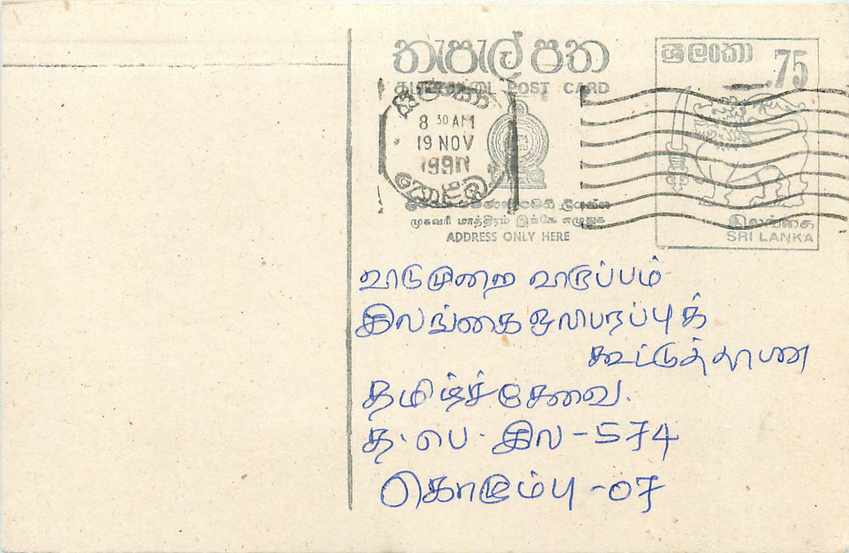 තැපැල් පත
ශ්‍රී ලංකා .75
POST CARD
8 30 AM
19 NOV
முகவரி மாத்திரம் இங்கே எழுதுக
ADDRESS ONLY HERE
இலங்கை
SRI LANKA
விருப்பம்
இலங்கை ஒலிபரப்புக்
கூட்டுத்தாபன
தமிழ்ச்சேவை.
த.பெ.இல-574
கொழும்பு-07